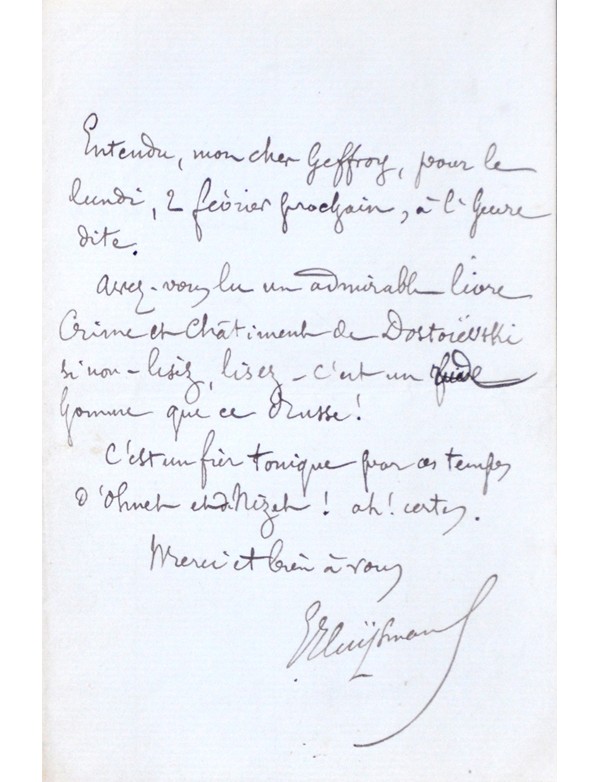 Entendu, mon cher Geffroy, pour le
lundi, 2 février prochain, à l'heure
dite.
avez-vous lu un admirable livre
Crime et Châtiment de Dostoïevski
si non - lisez, lisez - c'est un
homme que ce Russe!
C'est un fier tonique par ces temps
d'Ohnet et de Mizet! ah! certes.
Merci et bien à vous
Huÿsmans